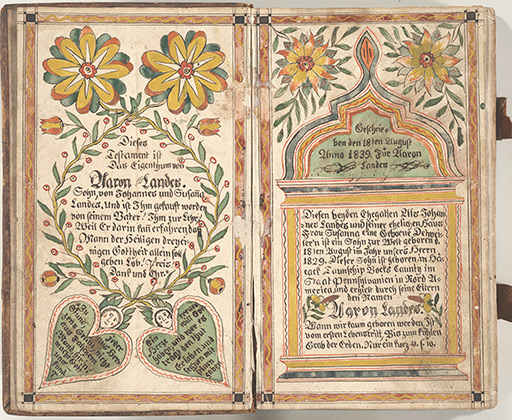 Dieses
Testament ist
Das Eigenthum von
Aaron Landes.
Sohn, von Johannes und Susaña
Landes, Und ist Ihm gekauft worden
von seinem Vater! Ihm zur Lehr,
Weil Er darin kañ erfahren daß
Mann der Heiligen dreyei-
nigen Gottheit allein soll
geben Lob! Preis!
Dank und Ehr.
Geschrie-
ben den 18ten August
Anno 1839. Für Aaron
Landes
Diesen beyden Ehegatten Als Johan-
nes Landes und seiner ehelichen Haus
Frau Susanna eine Geborne
ist ein Sohn zur Welt geboren d.
18ten August im Jahr unsers Herrn
1829. Dieser Sohn ist geboren in
Taunschip Bocks Caunty im
Staat Pennsylvanien in Nord A-
merica und erhielt durch seine Eltern
den Namen
Aaron Landes.
Wann wir kaum geboren werden, Ist
vom ersten Lebenstritt, Bis zum kühlen
Grab der Erden, Nur ein kurz u. s. w.